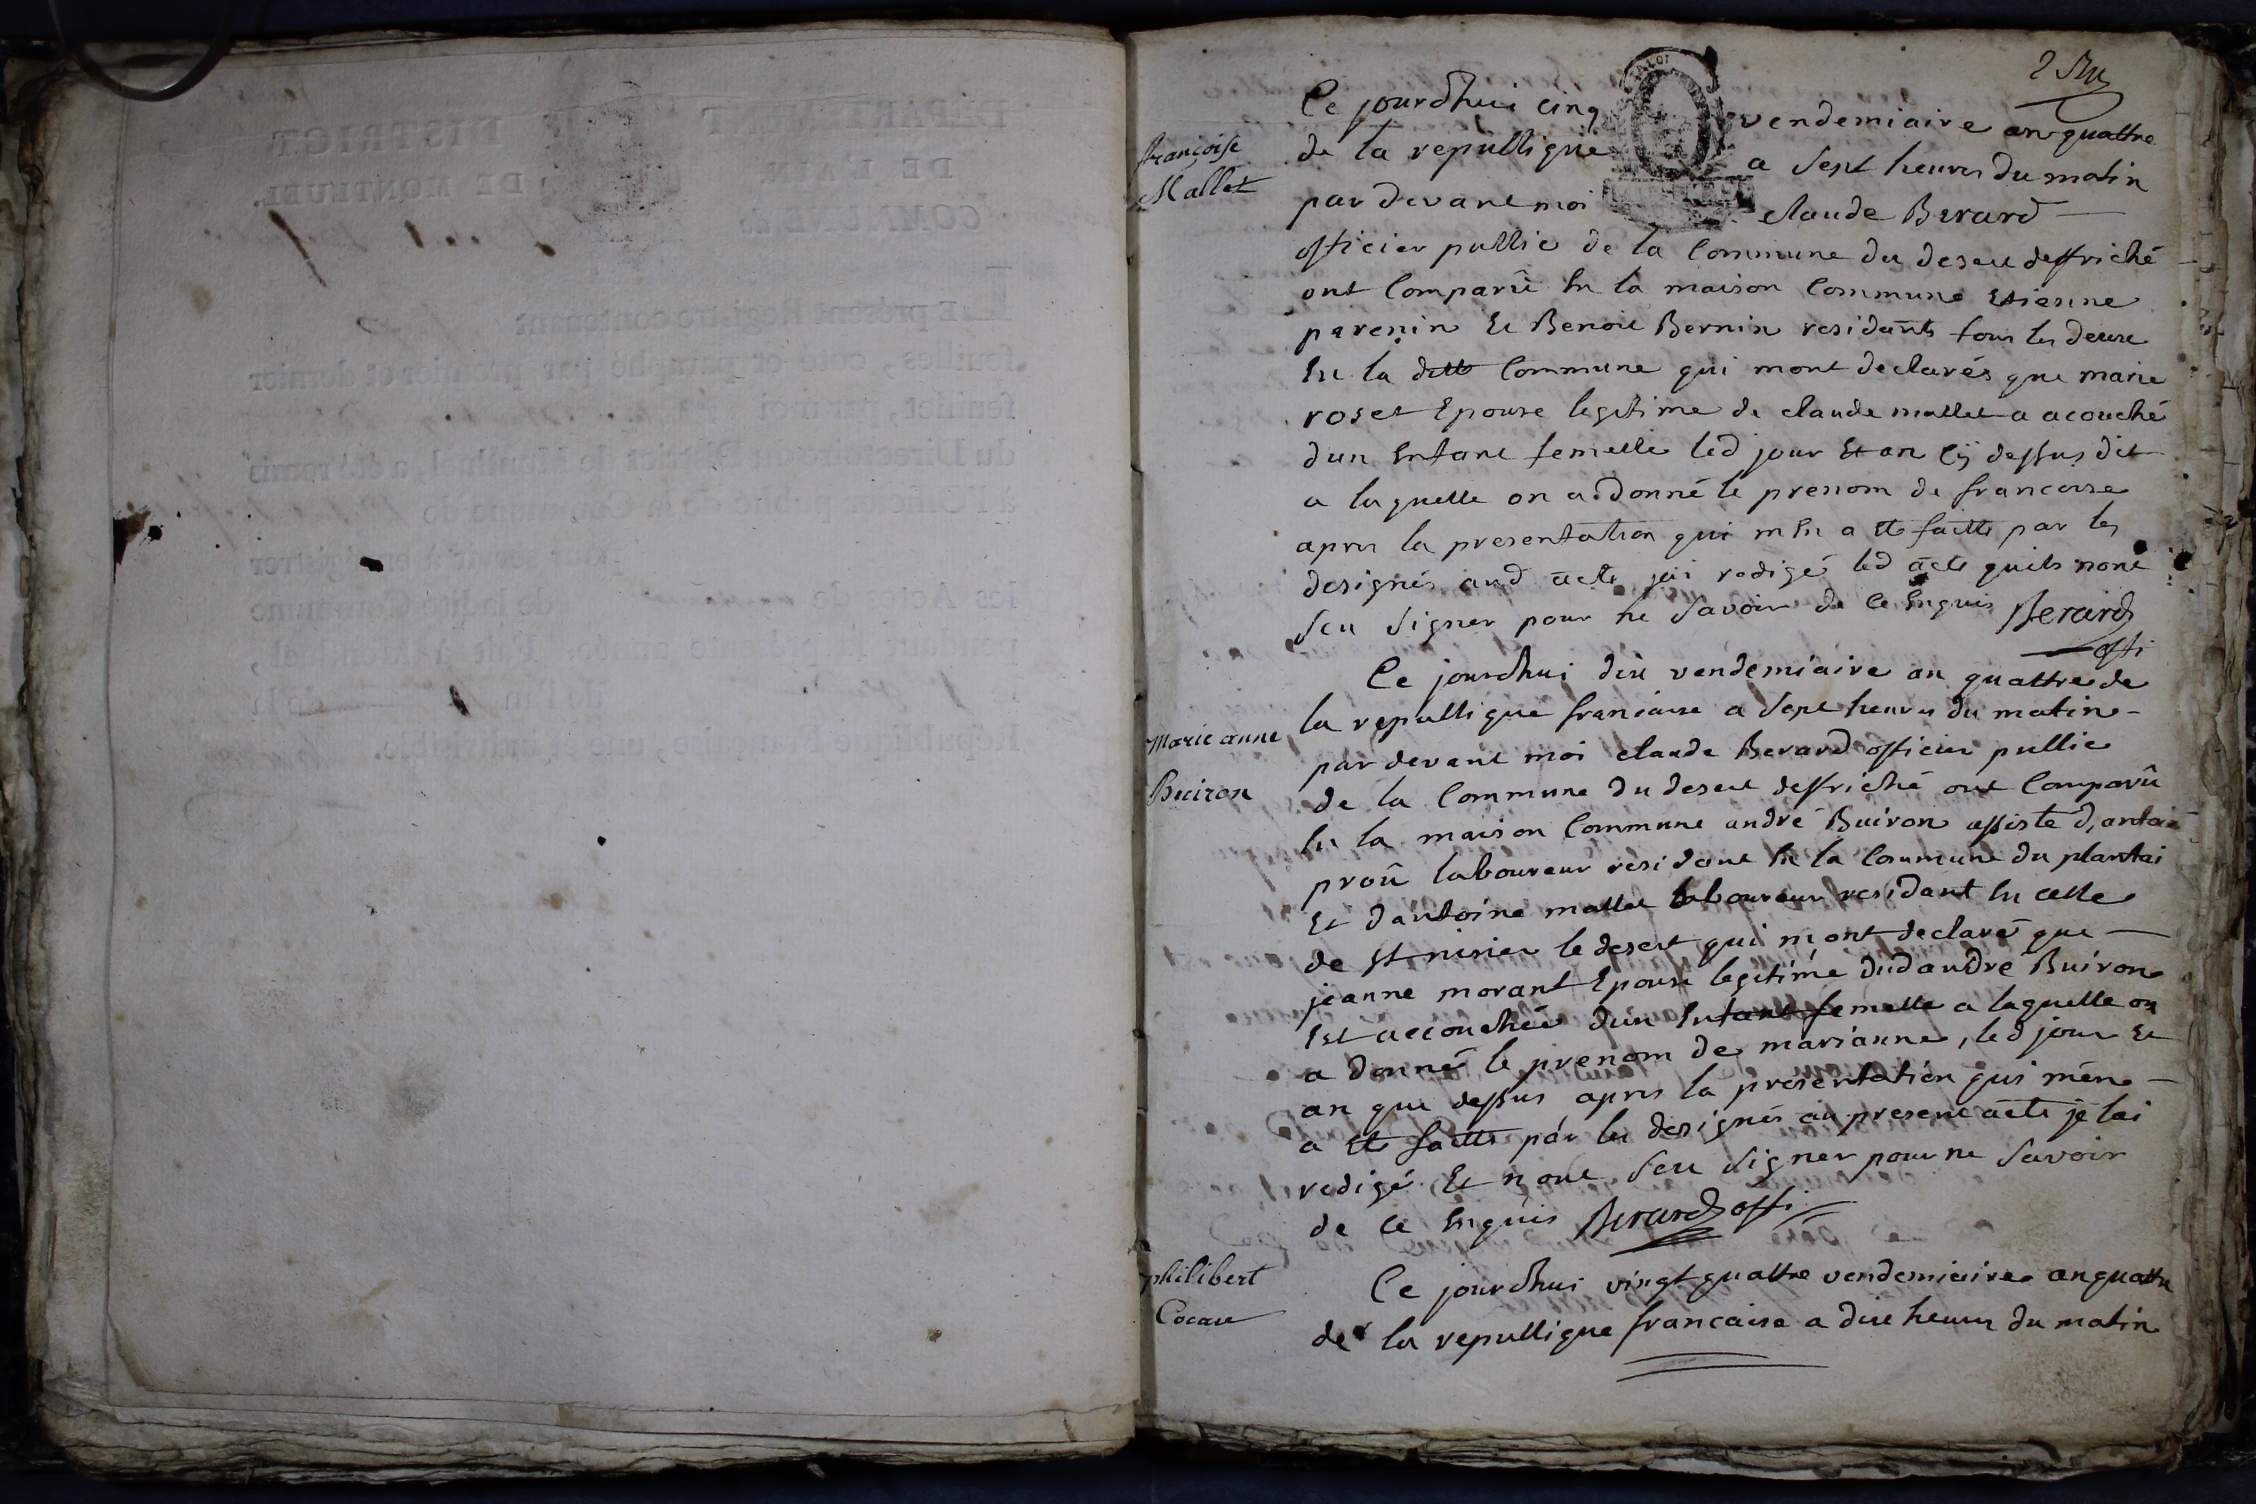 françoise
Mallet
Ce jourdhui cinq vendemiaire an quattre
de la republique a sept heures du matin
par devant moi claude Berard
officier public de la Commune du desert deffriché
ont Comparû En la maison Commune Etienne
pavenin Et Benoit Bernin residants tous les deux
En la ditte Commune qui mont declarés que marie
roset Epouse legitime de claude mallet a acouché
dun Enfant femelle led jour Et an Cÿ dessus dit
a laquelle on a donné le prenom de francoise
apres la presentation qui mEn a Ete faitte par les
designés aud acte jai redigé led acte quils nont
seu signer pour ne savoir de ce Enquis Berard
offi
Marie anne
Buiron
Ce jourdhui dix vendemiaire an quattre de
la republique francaise a sept heures du matin
par devant moi claude Berard officier public
de la Commune du desert deffriché ont Comparû
En la maison Commune andré Buiron assiste d,antoi
proû laboureur resident En la Commune du plantai
Et dantoine mallet laboureur residant En celle
de St nisier le desert qui m,ont declaré que
jeanne morant Epouse legitime dudandré Buiron
Est accouchée dun Enfant femelle a laquelle on
a donné le prenom de marianne, led jour Et
an que dessus apres la presentation qui mèn
a Ete faitte par les designés au present acte je lai
redigé Et nont seu signer pour ne savoir
de ce Enquis Berard offi
philibert
Ce jourdhui vingt quattre vendemiaire an quattre
de la republique francaise a dix heures du matin